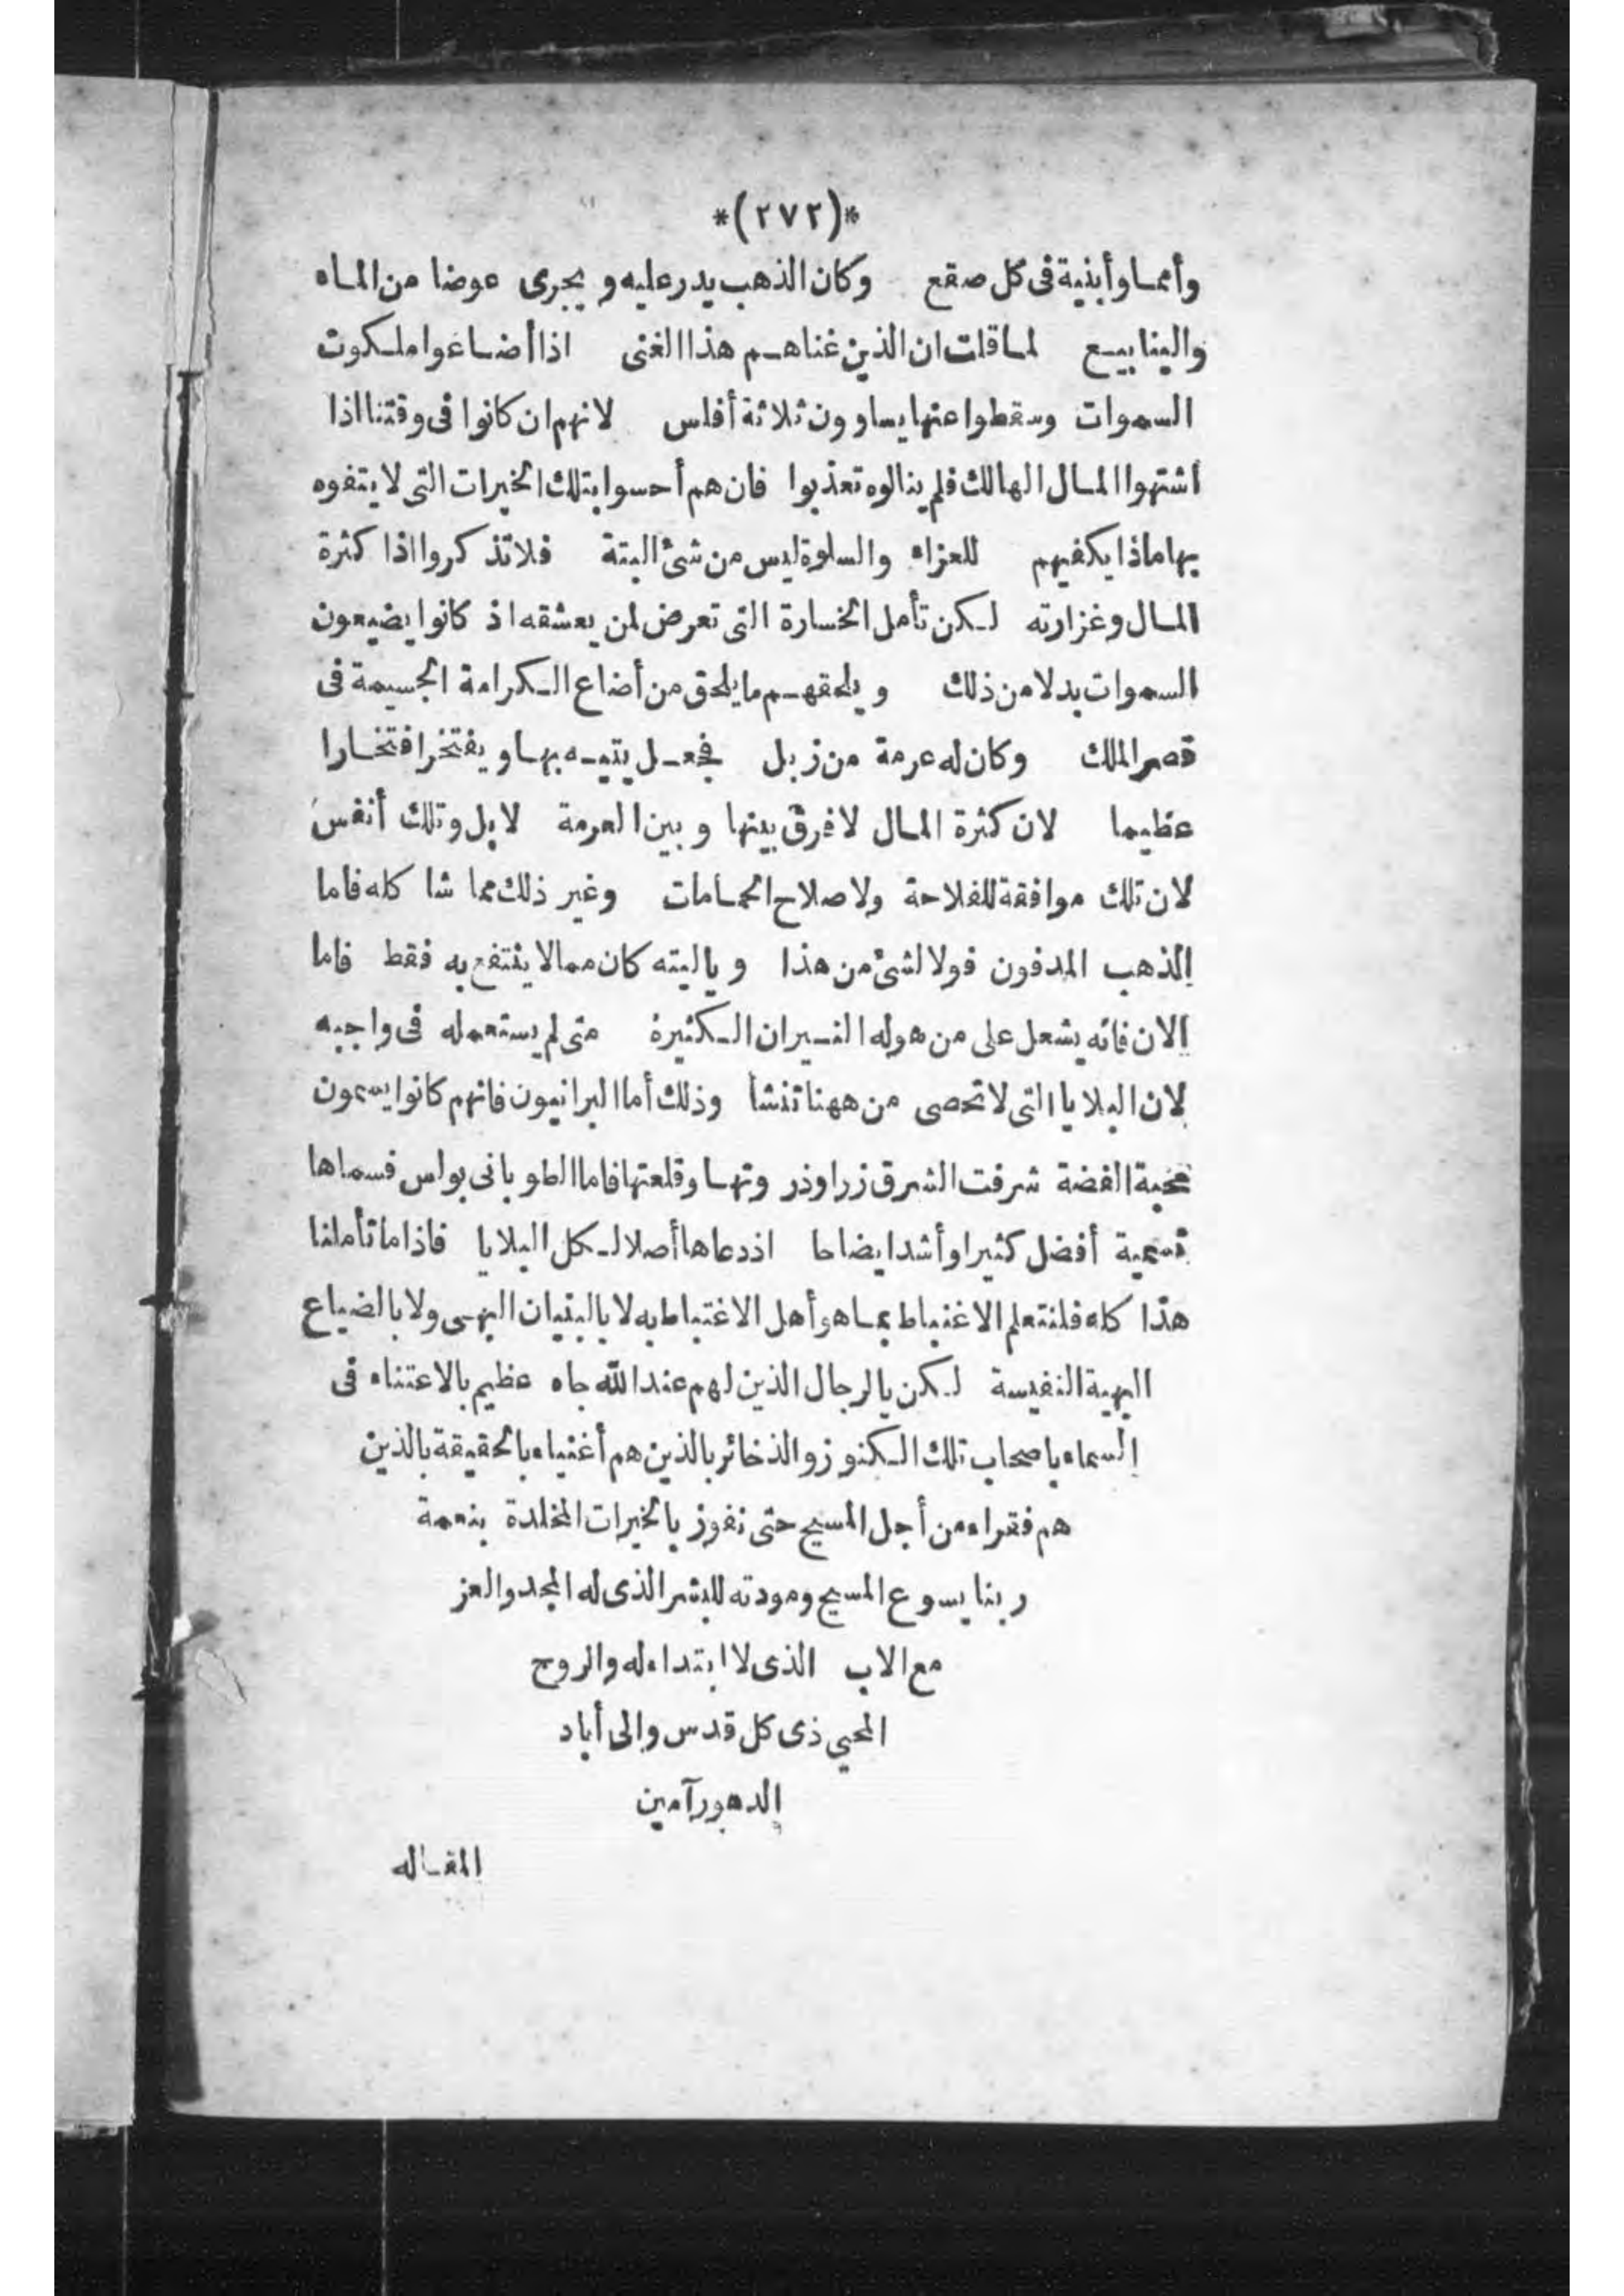 *(٢٧٢)*
وأمما وأبنية فى كل صقع وكان الذهب يدر عليه و يجرى عوضا من الماء
والينابيع لما قلت ان الذين غناهم هذا الغنى اذا أضاعوا ملكوت
السموات وسقطوا عنها يساوون ثلاثة أفلس لانهم ان كانوا فى وقتنا اذا
اشتهوا المال الهالك فلم ينالوه تعذبوا فان هم أحسوا بتلك الخيرات التى لا يتفوه
بها ماذا يكفيهم للعزاء والسلوة ليس من شئ البتة فلا تذكروا اذا كثرة
المال وغزارته لكن تأمل الخسارة التى تعرض لمن يعشقه اذ كانوا يضيعون
السموات بدلا من ذلك و يلحقهم ما يلحق من أضاع الكرامة الجسيمة فى
قصر الملك وكان له عرمة من زبل فجعل يتيه بها و يفتخر افتخارا
عظيما لان كثرة المال لا فرق بينها و بين العرمة لا بل وتلك أنفس
لان تلك موافقة للفلاحة ولاصلاح الحمامات وغير ذلك مما شا كله فاما
الذهب المدفون فولا لشئ من هذا و ياليته كان مما لا ينتفع به فقط فاما
الان فانه يشعل على من هو له النيران الكثيرة متى لم يستعمله فى واجبه
لان البلايا التى لا تحصى من ههنا تنشأ وذلك أما البرانيون فانهم كانوا يسمون
محبة الفضة شرفت الشرق زراوذر وتها وقلعتها فاما الطو بانى بولس فسماها
تسمية أفضل كثيرا وأشد ايضاحا اذ دعاها أصلا لكل البلايا فاذا ما تأملنا
هذا كله فلنتعلم الاغتباط بما هو أهل الاغتباط به لا بالبنيان البهى ولا بالضياع
البهية النفيسة لكن بالرجال الذين لهم عند الله جاه عظيم بالاعتناء فى
السماء باصحاب تلك الكنوز والذخائر بالذين هم أغنياء بالحقيقة بالذين
هم فقراء من أجل المسيح حتى نفوز بالخيرات المخلدة بنعمة
ربنا يسوع المسيح ومودته للبشر الذى له المجد والعز
مع الاب الذى لا ابتداء له والروح
المحيى ذى كل قدس والى أباد
الدهور آمين
المقاله